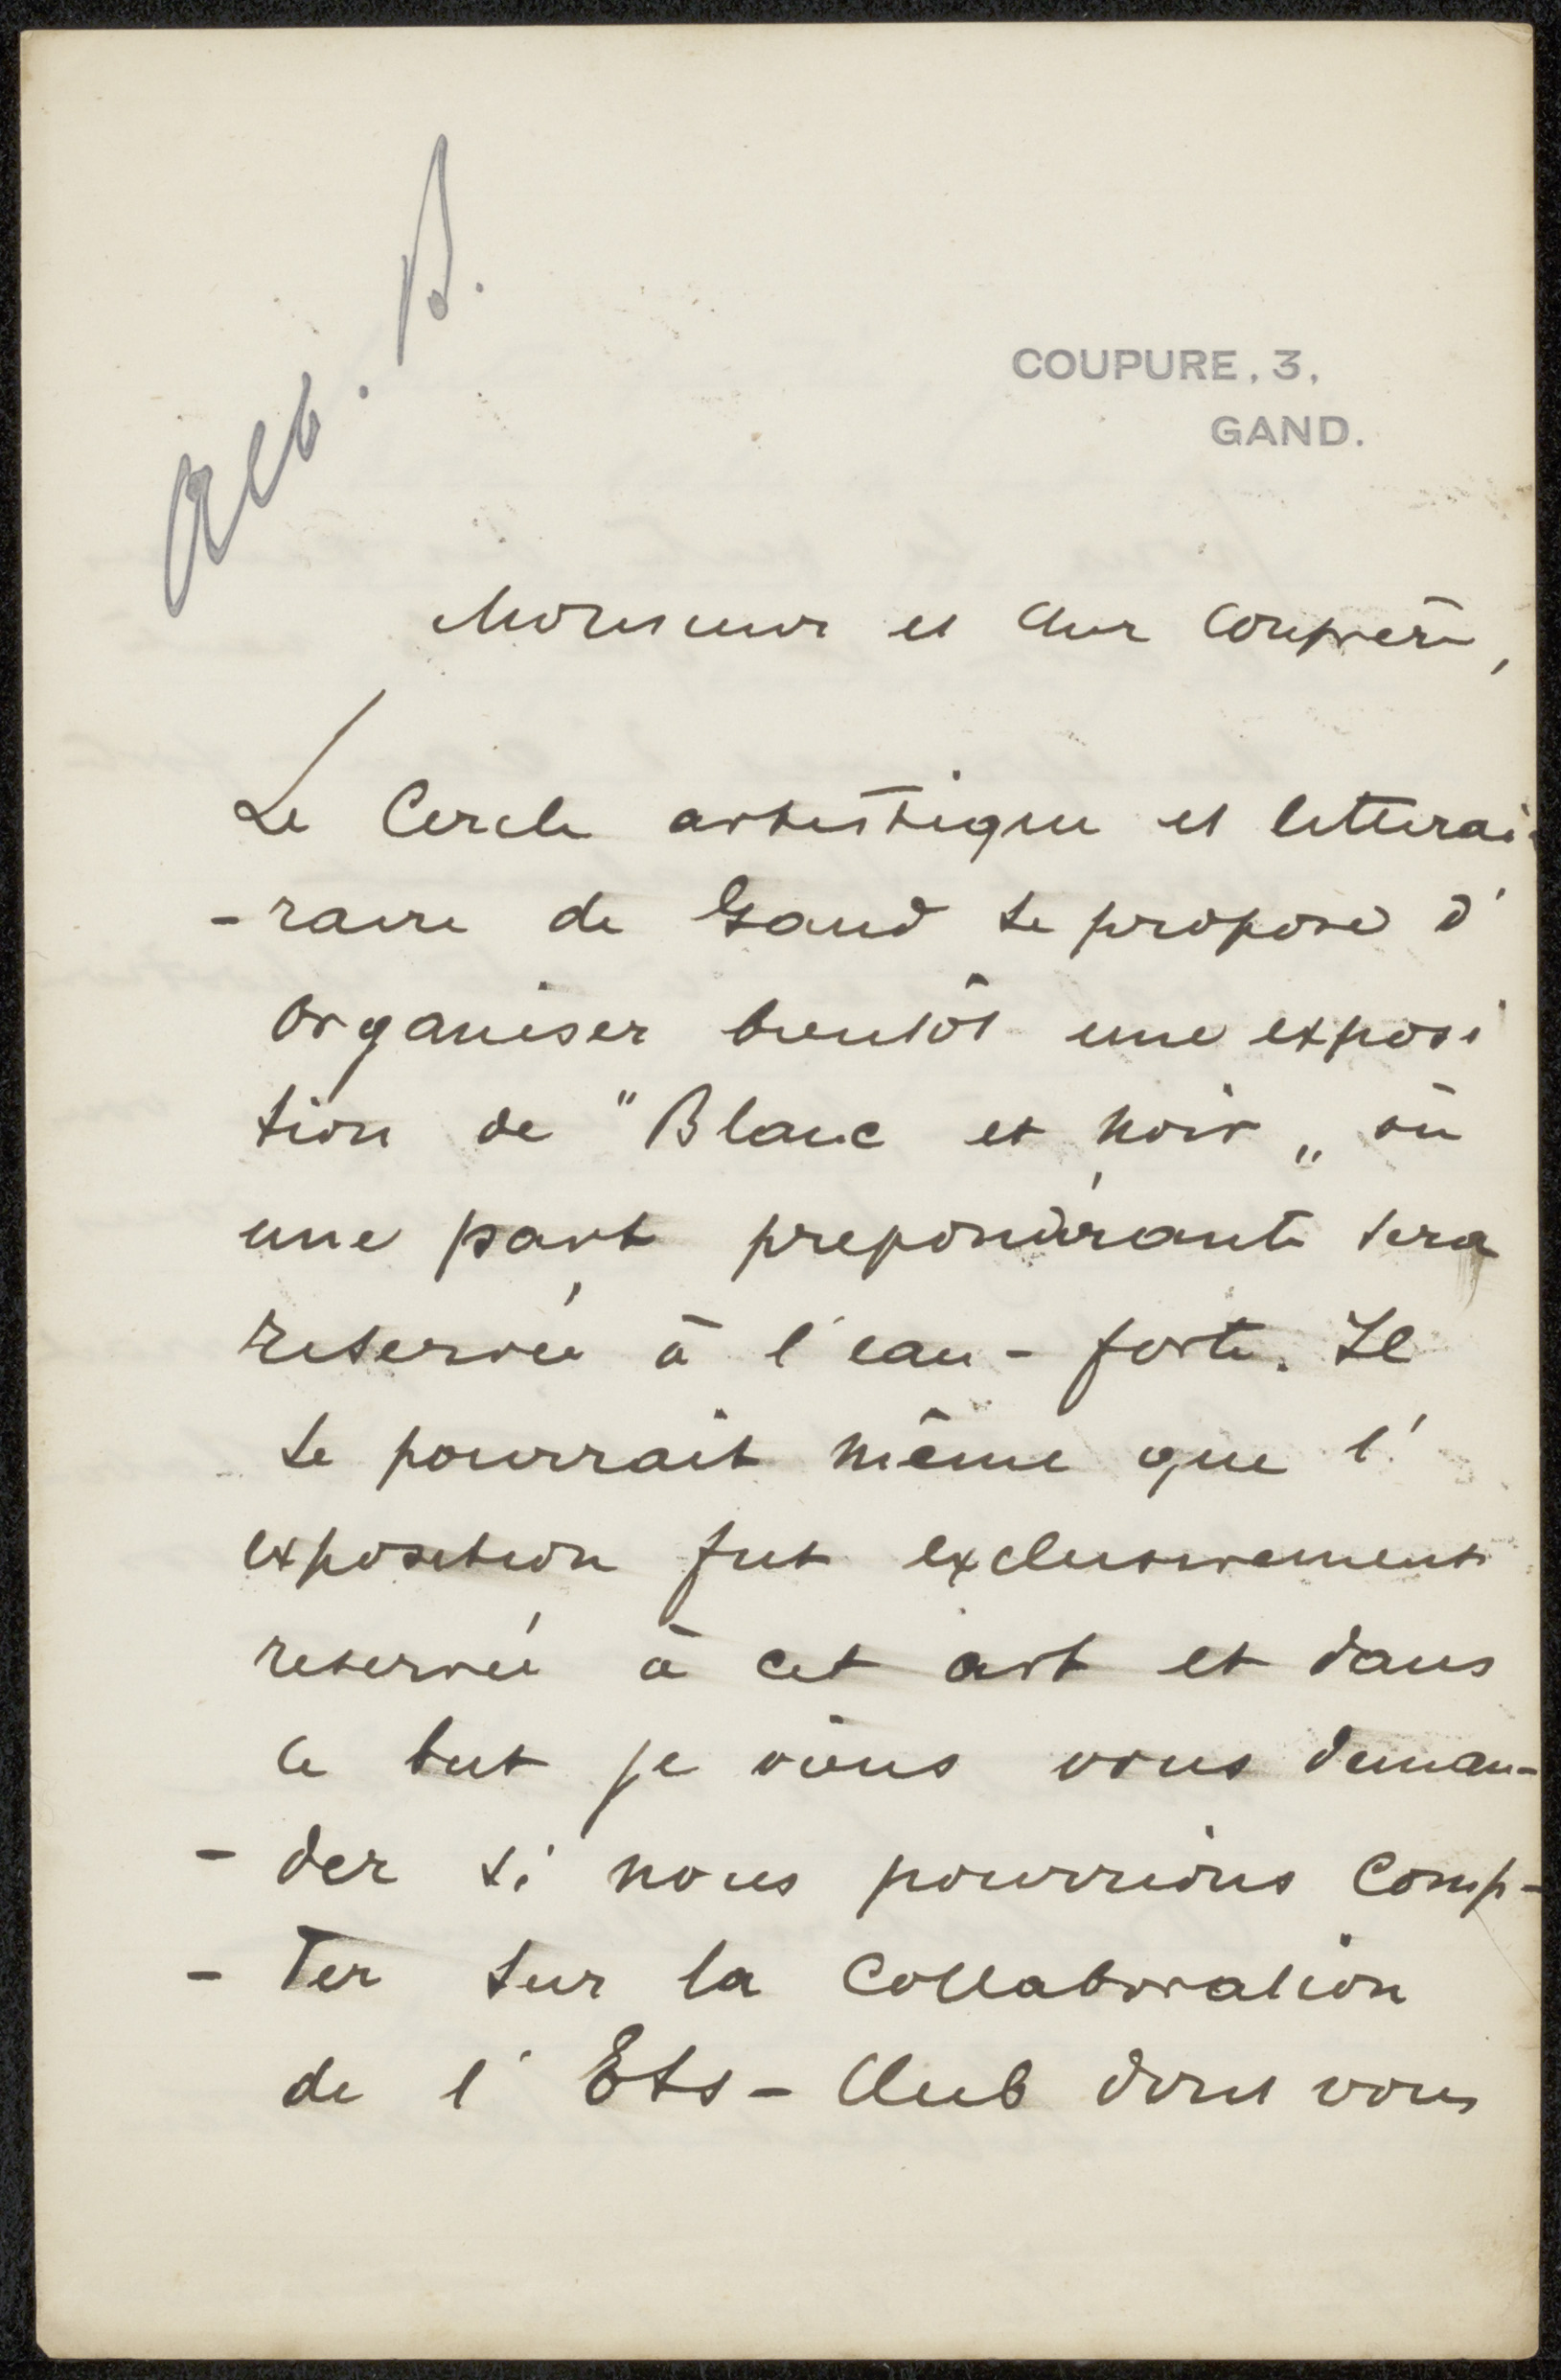 B.
COUPURE, 3,
GAND.
Monsieur et cher Confrère,
Le Cercle artistique et litterai-
-raire de Gand se propose d'
organiser bientôt une exposi
tion de "Blanc et noir„ où
une part prepondérante sera
reservée à l'eau-forte. Il
se pourrait même que l'
exposition fut exclusivement
reservée à cet art et dans
ce but je viens vous deman-
- der si nous pourrions comp-
- ter sur la collaboration
de l'Ets-Club dont vous